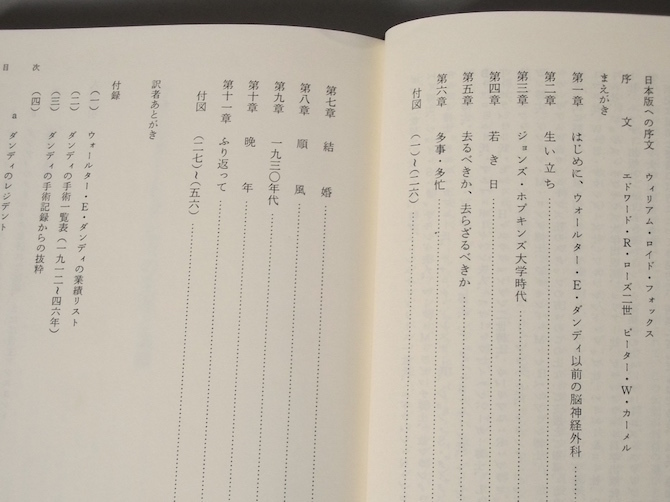 日本版への序文　ウィリアム・ロイド・フォックス
序　文　エドワード・R・ローズ二世　ピーター・W・カーメル
まえがき
第一章　はじめに、ウォールター・E・ダンディ以前の脳神経外科
第二章　生い立ち
第三章　ジョンズ・ホプキンズ大学時代
第四章　若き日
第五章　去るべきか、去らざるべきか
第六章　多事・多忙
付図　(一)〜(二六)
第七章　結　婚
第八章　順　風
第九章　一九三〇年代
第十章　晩　年
第十一章　ふり返って
付図　(二七)〜(五六)
訳者あとがき
付録
(一)　ウォールター・E・ダンディの業績リスト
(二)　ダンディの手術一覧表(一九一二〜四六年)
(三)　ダンディの手術記録からの抜粋
(四)
a　ダンディのレジデント
目　次